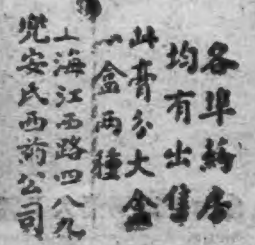 各埠药房
均有出售
此膏分大盒
小盒两種
上海江西路四八九
兜安氏西药公司